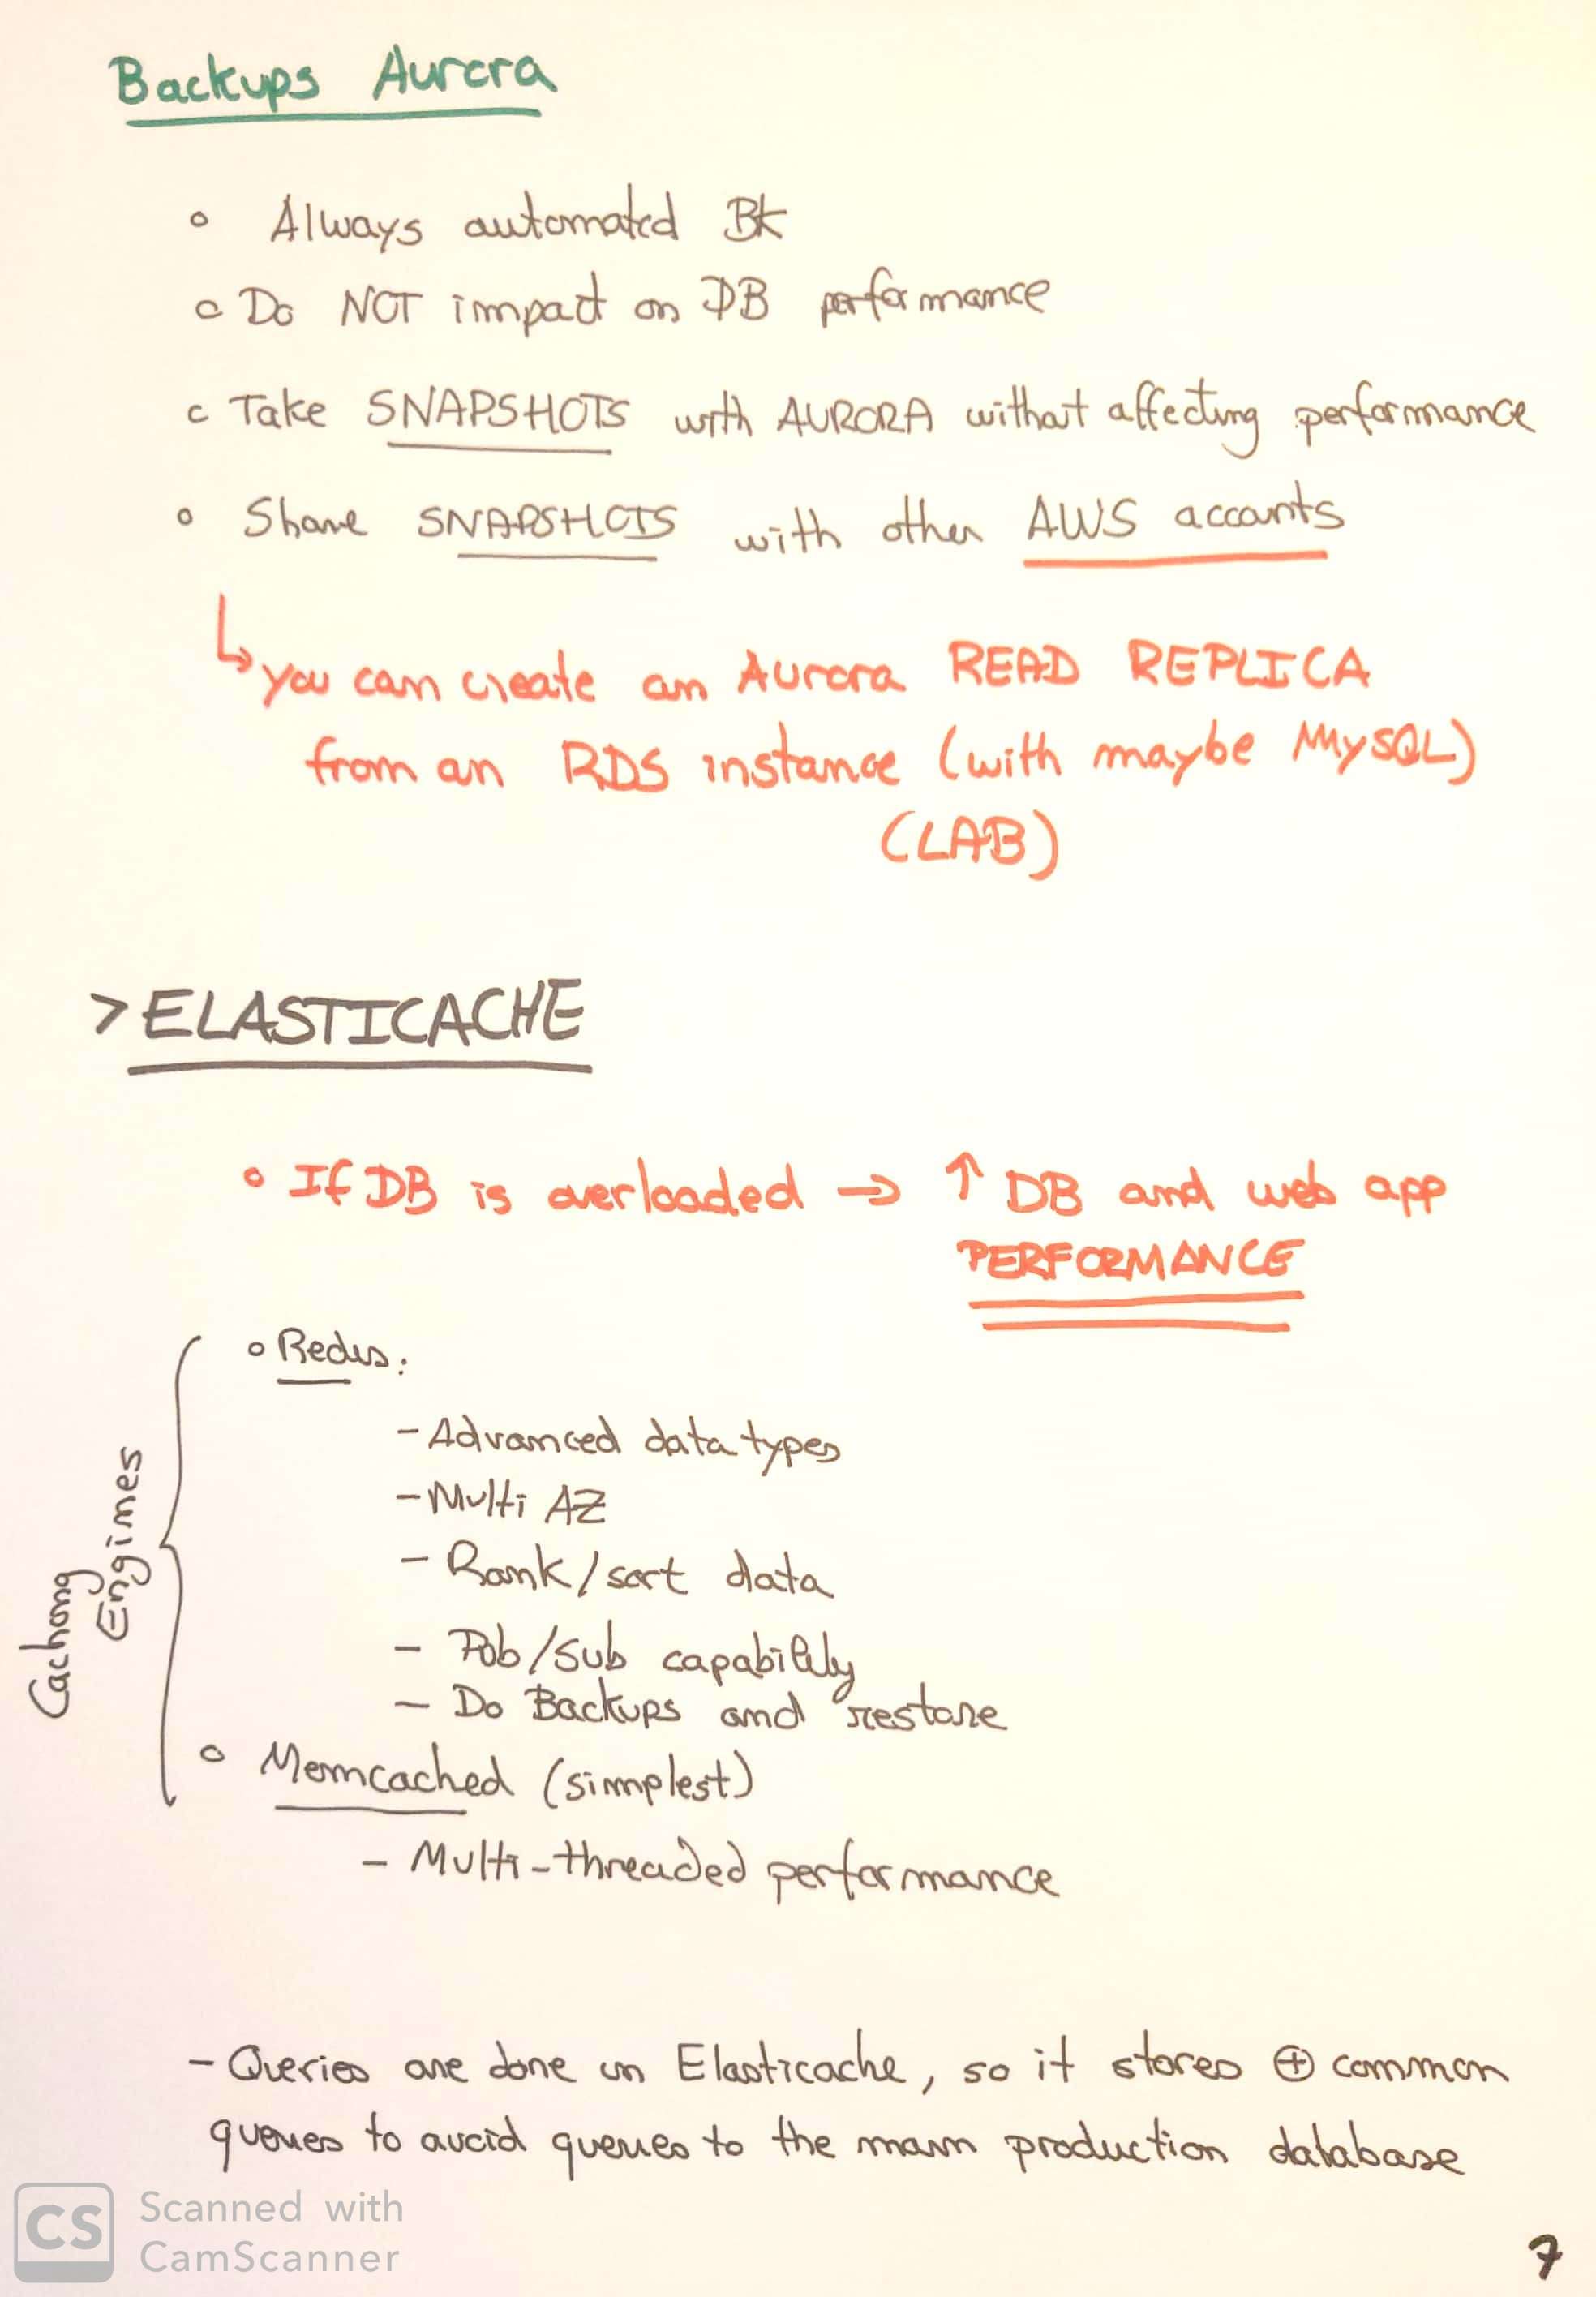 Backups Aurora
o Always automated BK
o Do NOT impact on DB performance
o Take SNAPSHOTS with AURORA without affecting performance
o Share SNAPSHOTS with other AWS accounts
↳ you can create an Aurora READ REPLICA
from an RDS instance (with maybe MySQL)
(LAB)
> ELASTICACHE
o If DB is overloaded → ↑ DB and web app
PERFORMANCE
Caching
Engines
o Redis:
- Advanced data types
- Multi AZ
- Rank/sort data
- Pub/Sub capability
- Do Backups and restore
o Memcached (simplest)
- Multi-threaded performance
- Queries are done in Elasticache, so it stores ⊕ common
queries to avoid queries to the main production database
CS
Scanned with
CamScanner
7